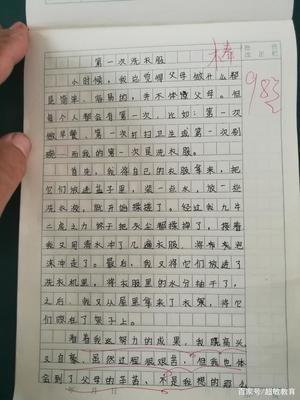 棒
98
第一次洗衣服
小时候，我总觉得父母做什么都是简单、容易的，并不体谅父母。但每个人都会有第一次，比如：第一次做早餐、第一次打扫卫生或第一次刷碗…而我的第一次是洗衣服。
首先，我将自己的衣服拿来，把它们放进盆子里，装一点水，放一些洗衣液，就开始揉搓了。经过我九牛二虎之力终于把灰尘都揉掉了，接着我又用清水冲了几遍衣服，将布衣泡沫冲走了。最后，我又将它们放进了洗衣机里，将衣服里的水分抽干了，之后，我又从屋里拿来了衣架，将它们晾在了架子上。
看着我这努力的成果，我既高兴又自豪，虽然过程很艰苦，但我也体会到了父母的辛苦，不是我想的那么
百家号/超敏教育